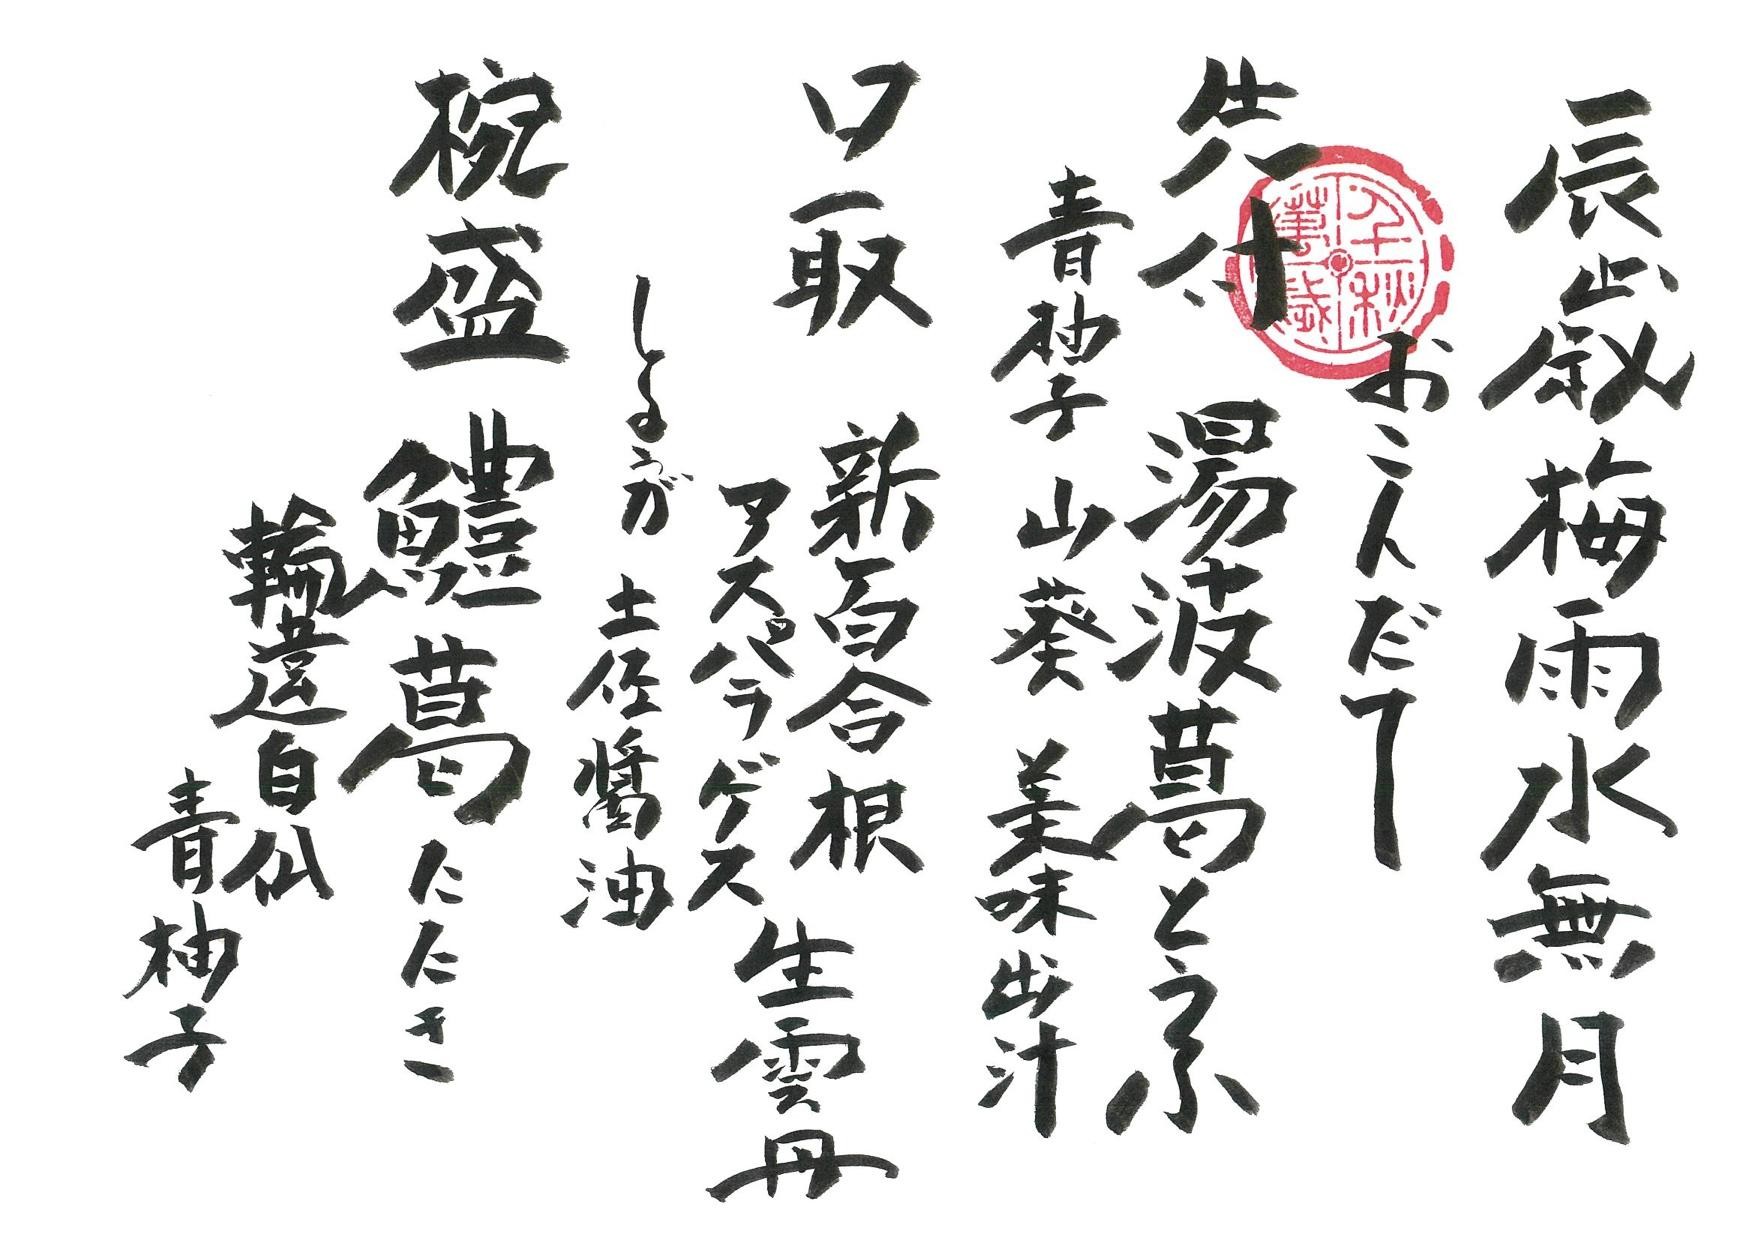 辰歳梅雨水無月
おこんだて
先付
湯波葛とうふ
青柚子 山葵 美味出汁
口取
新百合根
アスパラゲス
生雲丹
土佐醤油
椀盛
鱧葛たたき
輪違白仙
青柚子
千秋
萬歳